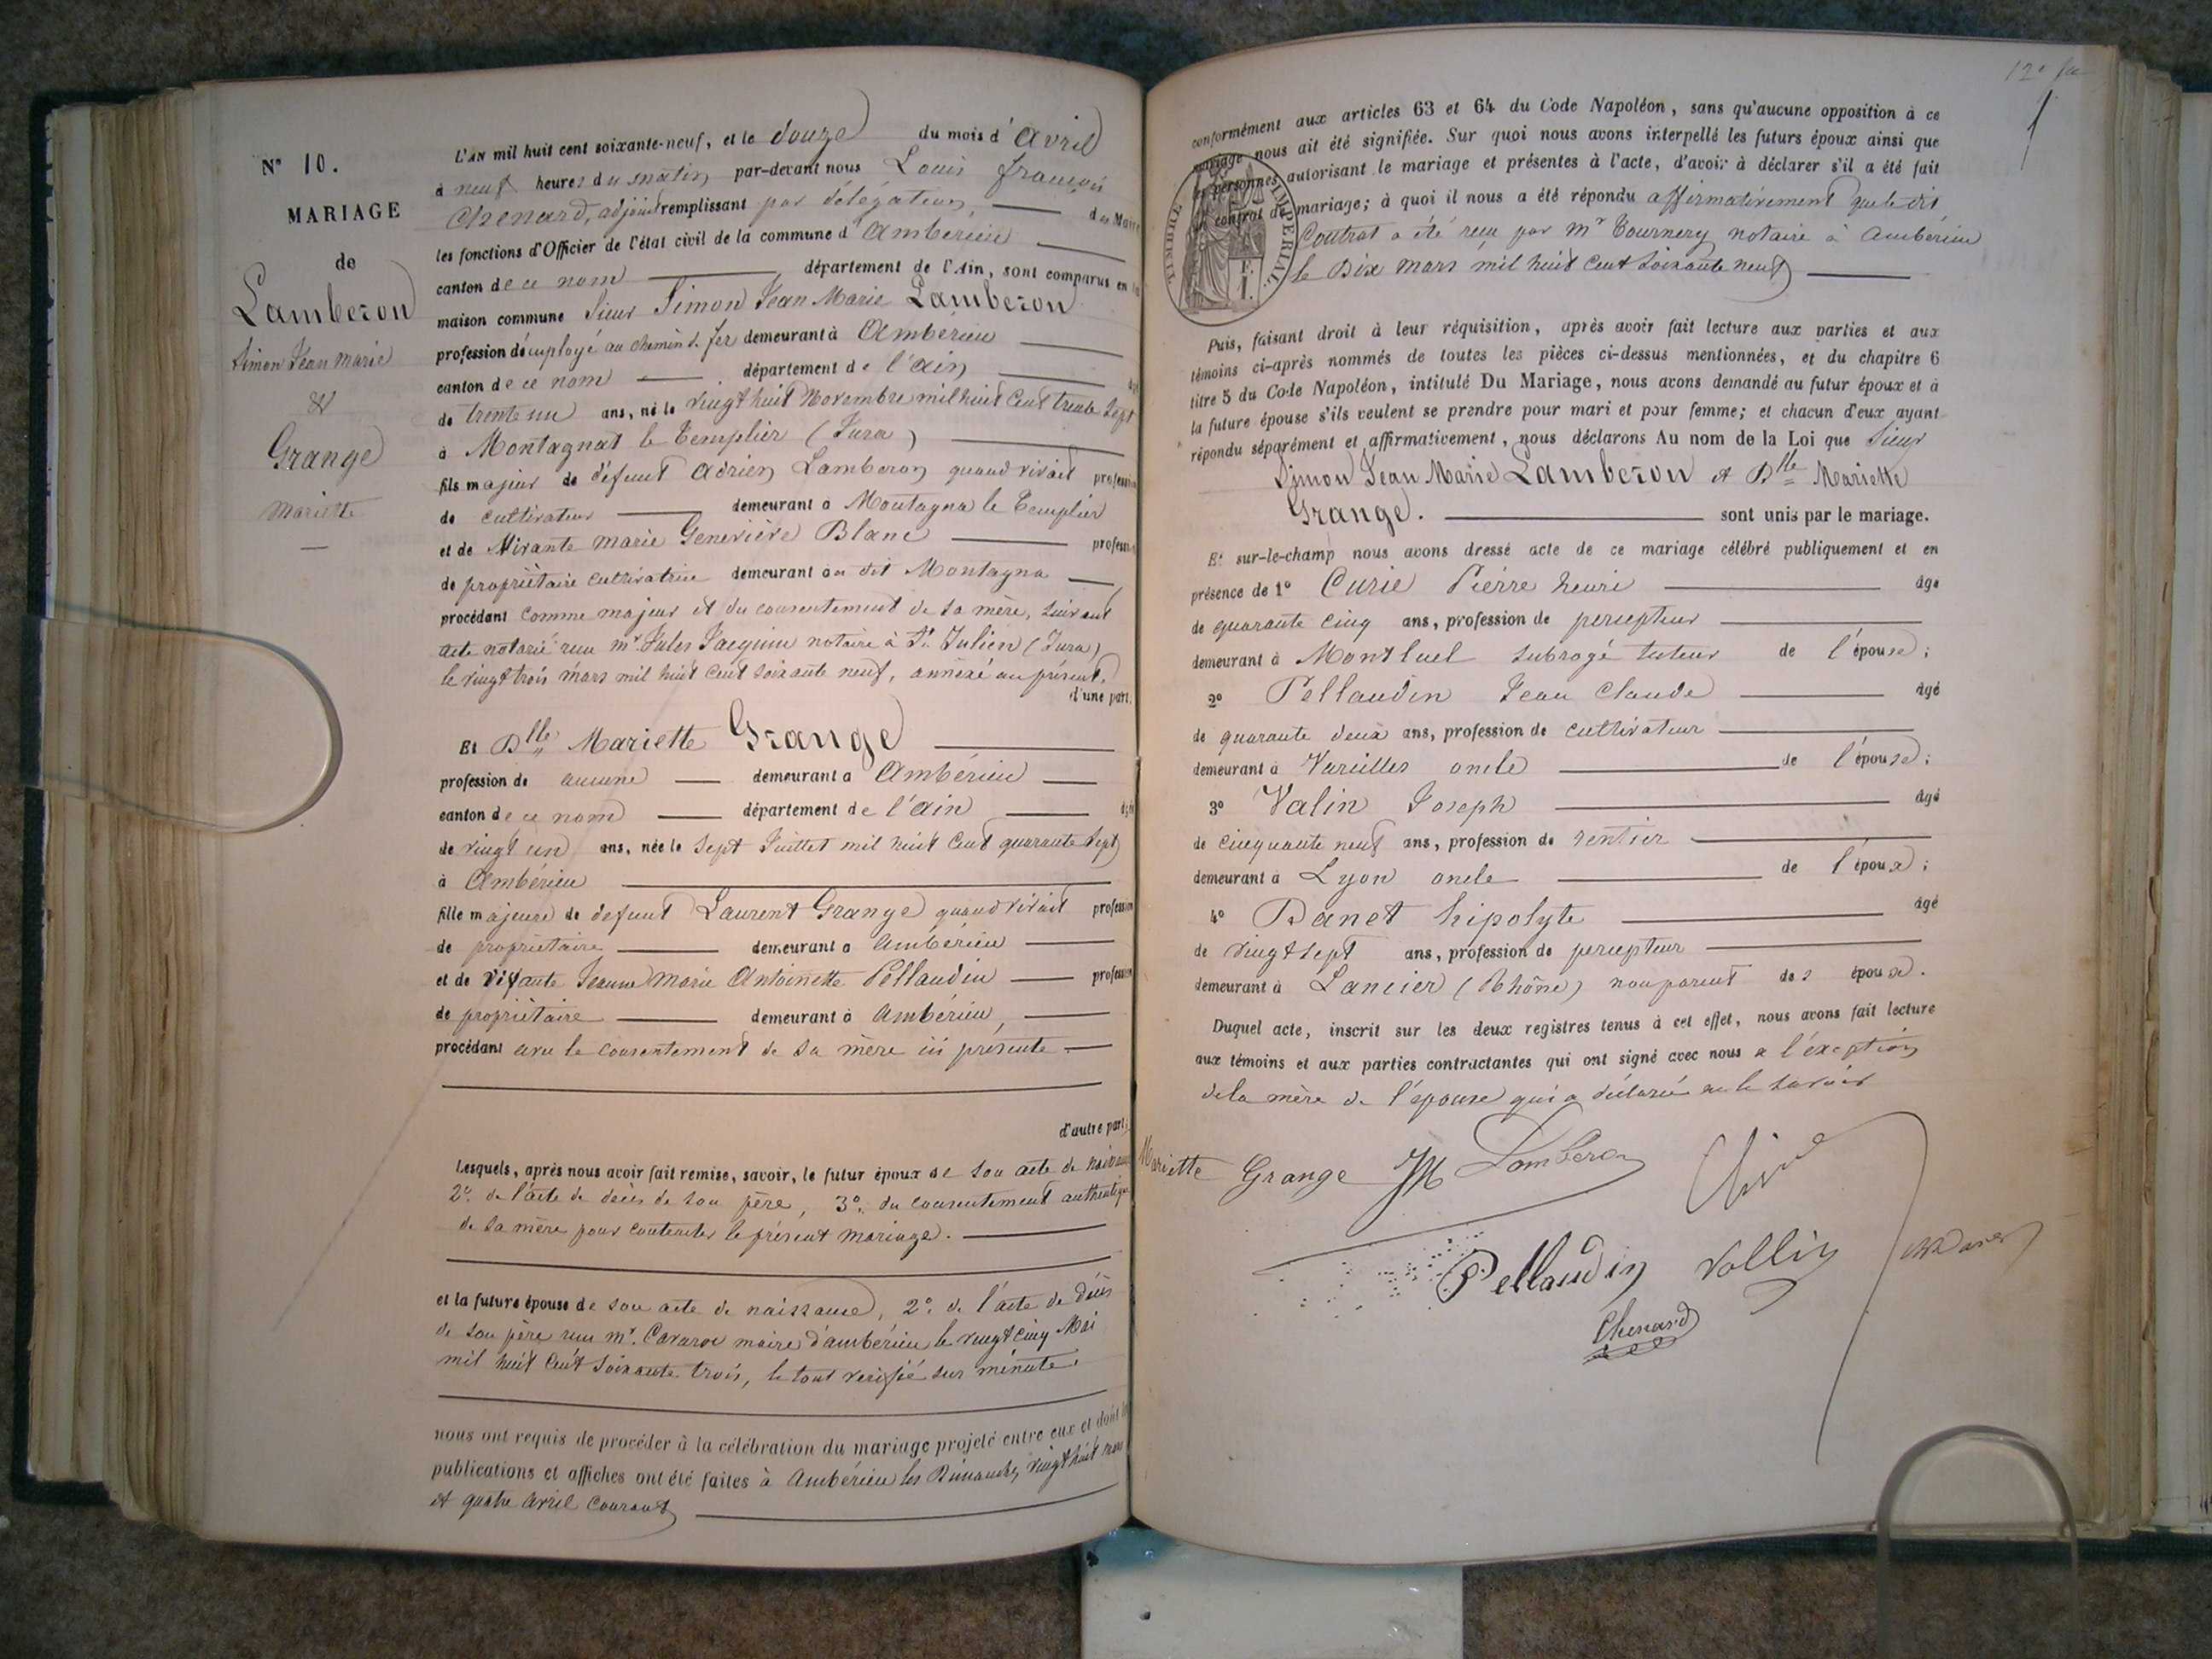 N° 10.
MARIAGE
de
Lamberon
Simon Jean Marie
&
Grange
Mariette
L'AN mil huit cent soixante-neuf, et le douze du mois d'Avril
à neuf heures du matin par-devant nous Louis françois
Chenard, adjoint remplissant par délégation, du Maire
les fonctions d'Officier de l'état civil de la commune d'Ambérieu
canton de ce nom département de l'Ain, sont comparus en la
maison commune Sieur Simon Jean Marie Lamberon
profession d'employé au chemin de fer demeurant à Ambérieu
canton de ce nom département de l'ain âgé
de trente un ans, né le vingt huit Novembre mil huit Cent trente Sept
à Montagnat le Templier (Jura)
fils majeur de défunt Adrien Lamberon quand vivait profession
de cultivateur demeurant à Montagna le Templier
et de Vivante Marie Geneviève Blanc profession
de propriètaire cultivatrice demeurant au dit Montagna
procédant comme majeur et du consentement de sa mère, suivant
acte notarié reçu mr Jules Jacquin notaire à St. Julien (Jura)
le vingt trois mars mil huit cent soixante neuf, annèxé au présent,
d'une part.
Et Dlle Mariette Grange
profession de aucune demeurant à Ambérieu
canton de ce nom département de l'ain âgée
de vingt un ans, née le sept Juillet mil huit Cent quarante sept
à Ambérieu
fille majeure de defunt Laurent Grange quand vivait profession
de propriètaire demeurant à Ambérieu
et de vivante Jeanne Marie Antoinette Pellaudin profession
de propriètaire demeurant à Ambérieu,
procédant avec le consentement de sa mère ici présente.
d'autre part;
Lesquels, après nous avoir fait remise, savoir, le futur époux de son acte de naissance
2° de l'acte de décès de son père, 3° du consentement authentique
de sa mère pour contracter le présent mariage.
et la future épouse de son acte de naissance, 2° de l'acte de décès
de son père reçu mr. maire d'ambérieu le vingt cinq Mai
mil huit Cent soixante trois, le tout verifié sur minute.
nous ont requis de procéder à la célébration du mariage projeté entre eux et dont les
publications et affiches ont été faites à Ambérieu les Dimanches vingt huit mars
et quatre avril courant
conformément aux articles 63 et 64 du Code Napoléon, sans qu'aucune opposition à ce
mariage nous ait été signifiée. Sur quoi nous avons interpellé les futurs époux ainsi que
les personnes autorisant le mariage et présentes à l'acte, d'avoir à déclarer s'il a été fait
un contrat de mariage; à quoi il nous a été répondu affirmativement que le dit
Contrat a été reçu par mr Tournery notaire à Ambérieu
le Dix Mars mil huit Cent soixante neuf
TIMBRE IMPERIAL
F.
1.
Puis, faisant droit à leur réquisition, après avoir fait lecture aux parties et aux
témoins ci-après nommés de toutes les pièces ci-dessus mentionnées, et du chapitre 6
titre 5 du Code Napoléon, intitulé Du Mariage, nous avons demandé au futur époux et à
la future épouse s'ils veulent se prendre pour mari et pour femme; et chacun d'eux ayant
répondu séparément et affirmativement, nous déclarons Au nom de la Loi que Sieur
Simon Jean Marie Lamberon et Dlle Mariette
Grange. sont unis par le mariage.
Et sur-le-champ nous avons dressé acte de ce mariage célébré publiquement et en
présence de 1° Curie Pierre henri âgé
de quarante cinq ans, profession de percepteur
demeurant à Montluel subrogé tuteur de l'épouse;
2° Pellaudin Jean Claude âgé
de quarante deux ans, profession de cultivateur
demeurant à Vareilles oncle de l'épouse;
3° Valin Joseph âgé
de cinquante neuf ans, profession de rentier
demeurant à Lyon oncle de l'époux;
4° Danet hipolyte âgé
de vingt sept ans, profession de percepteur
demeurant à Lancier (Rhône) non parent des époux.
Duquel acte, inscrit sur les deux registres tenus à cet effet, nous avons fait lecture
aux témoins et aux parties contractantes qui ont signé avec nous à l'éxception
de la mère de l'épouse qui a déclaré ne le savoir
Mariette Grange JM Lamberon
Pellaudin Vollin
Chenard